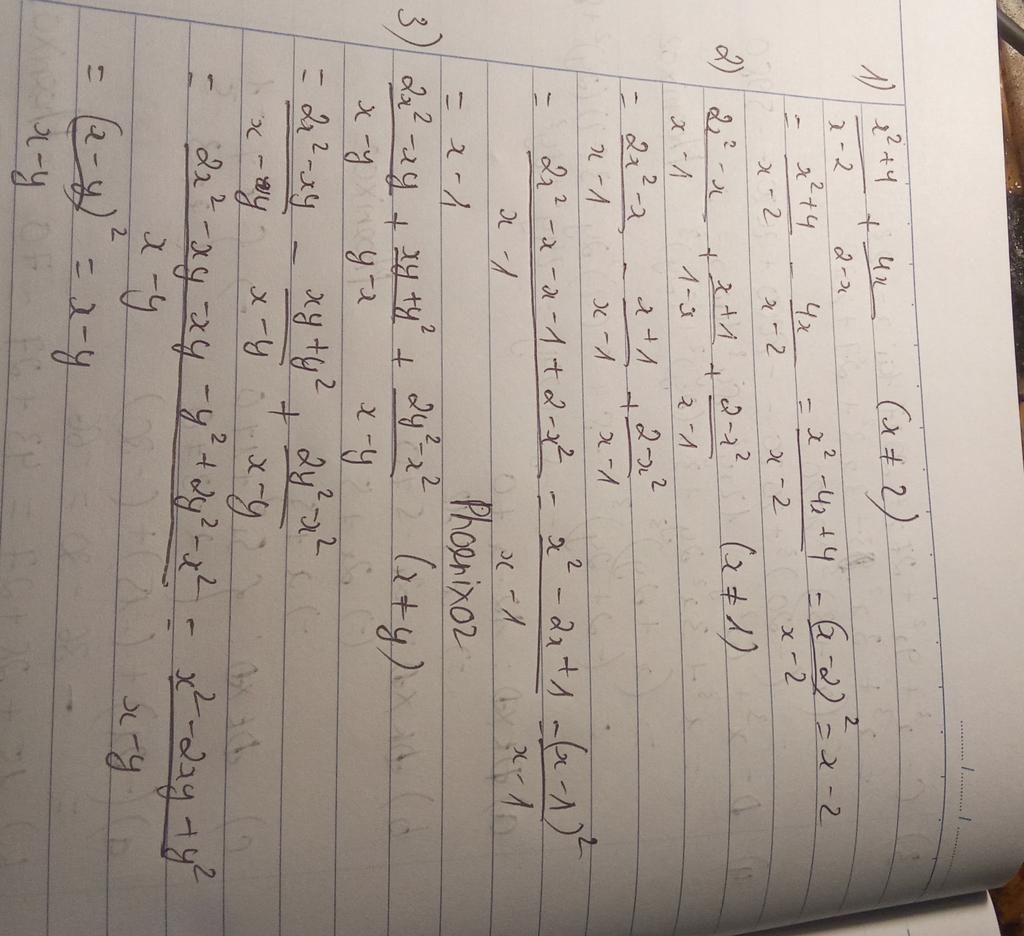 1) \frac{x^2+4}{x-2} + \frac{4x}{2-x} (x ≠ 2)
= \frac{x^2+4}{x-2} - \frac{4x}{x-2} = \frac{x^2-4x+4}{x-2} = \frac{(x-2)^2}{x-2} = x-2
2) \frac{2x^2-x}{x-1} + \frac{x+1}{1-x} + \frac{2-x^2}{x-1} (x ≠ 1)
= \frac{2x^2-x}{x-1} - \frac{x+1}{x-1} + \frac{2-x^2}{x-1}
= \frac{2x^2-x-x-1+2-x^2}{x-1} = \frac{x^2-2x+1}{x-1} = \frac{(x-1)^2}{x-1}
= x-1 Phoenixoz
3) \frac{2x^2-xy}{x-y} + \frac{xy+y^2}{y-x} + \frac{2y^2-x^2}{x-y} (x ≠ y)
= \frac{2x^2-xy}{x-y} - \frac{xy+y^2}{x-y} + \frac{2y^2-x^2}{x-y}
= \frac{2x^2-xy-xy-y^2+2y^2-x^2}{x-y} = \frac{x^2-2xy+y^2}{x-y}
= \frac{(x-y)^2}{x-y} = x-y